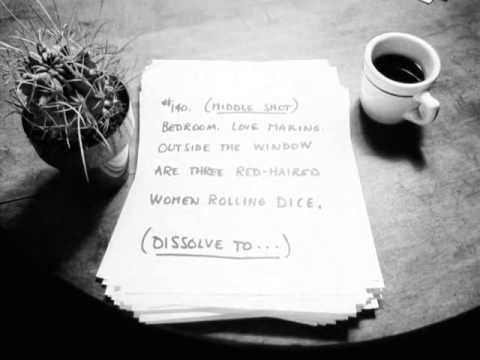 #140. (MIDDLE SHOT)
BEDROOM. LOVE MAKING.
OUTSIDE THE WINDOW
ARE THREE RED-HAIRED
WOMEN ROLLING DICE.
(DISSOLVE TO...)